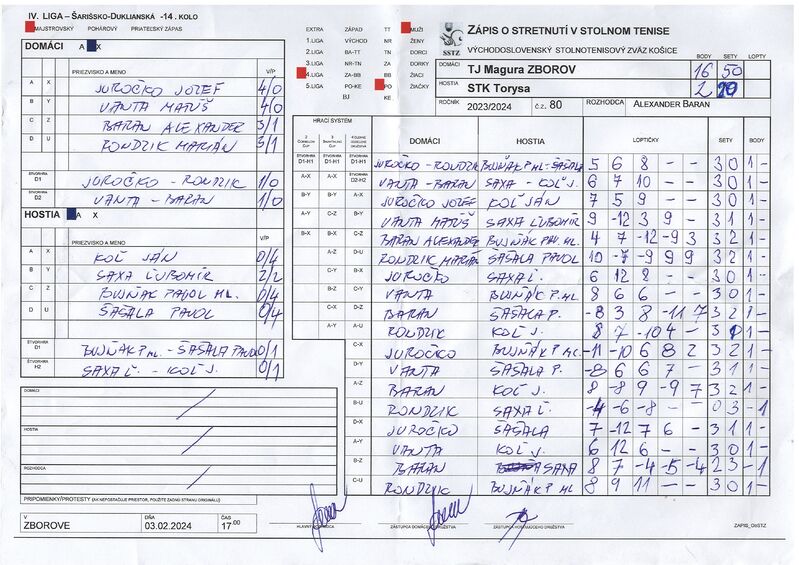 IV. LIGA – ŠARIŠSKO-DUKLIANSKÁ -14. KOLO
MAJSTROVSKÝ POHÁROVÝ PRIATEĽSKÝ ZÁPAS
DOMÁCI A X
PRIEZVISKO A MENO V/P
A X JUROČKO JOZEF 4/0
B Y VANTA MATÚŠ 4/0
C Z BARAN ALEXANDER 3/1
D U RONDZIK MARIÁN 3/1
ŠTVORHRA D1 JUROČKO - RONDZIK 1/0
ŠTVORHRA D2 VANTA - BARAN 1/0
HOSTIA A X
PRIEZVISKO A MENO V/P
A X KOĽ JÁN 0/4
B Y SAXA ĽUBOMÍR 2/2
C Z BUJŇÁK PAVOL ML. 0/4
D U ŠAŠALA PAVOL 0/4
ŠTVORHRA D1 BUJŇÁK P ML. - ŠAŠALA PAVOL 0/1
ŠTVORHRA H2 SAXA Ľ. - KOĽ J. 0/1
DOMÁCI
HOSTIA
ROZHODCA
PRIPOMIENKY/PROTESTY (AK NEPOSTAČUJE PRIESTOR, POUŽITE ZADNÚ STRANU ORIGINÁLU)
V ZBOROVE DŇA 03.02.2024 ČAS 17.00
EXTRA ZÁPAD TT MUŽI
1.LIGA VÝCHOD NR ŽENY
2.LIGA BA-TT TN DORCI
3.LIGA NR-TN ZA DORKY
4.LIGA ZA-BB BB ŽIACI
5.LIGA PO-KE PO ŽIAČKY
BJ KE
SSTZ
ZÁPIS O STRETNUTÍ V STOLNOM TENISE
VÝCHODOSLOVENSKÝ STOLNOTENISOVÝ ZVÄZ KOŠICE
BODY SETY LOPTY
DOMÁCI TJ Magura ZBOROV 16 50
HOSTIA STK Torysa 2
ROČNÍK 2023/2024 č.z. 80 ROZHODCA ALEXANDER BARAN
HRACÍ SYSTÉM DOMÁCI HOSTIA LOPTIČKY SETY BODY
ŠTVORHRA D1-H1 ŠTVORHRA D1-H1 ŠTVORHRA D1-H1 JUROČKO - RONDZIK BUJŇÁK P ML - ŠAŠALA 5 6 8 - - 3 0 1 -
A-X A-X ŠTVORHRA D2-H2 VANTA - BARAN SAXA - KOĽ J. 6 7 10 - - 3 0 1 -
B-Y B-Y A-X JUROČKO JOZEF KOĽ JÁN 7 5 9 - - 3 0 1 -
A-Y C-Z B-Y VANTA MATÚŠ SAXA ĽUBOMÍR 9 -12 3 9 - 3 1 1 -
B-X B-X C-Z BARAN ALEXANDER BUJŇÁK PAV. ML. 4 7 -12 -9 3 3 2 1 -
A-Z D-U RONDZIK MARIÁN ŠAŠALA PAVOL 10 -7 -9 9 9 3 2 1 -
C-Y B-X JUROČKO SAXA Ľ. 6 12 8 - - 3 0 1 -
B-Z C-Y VANTA BUJŇÁK P. ML 8 6 6 - - 3 0 1 -
C-X D-Z BARAN ŠAŠALA P. -8 3 8 -11 7 3 2 1 -
A-Y A-U RONDZIK KOĽ J. 8 7 -10 4 - 3 1 1 -
C-X JUROČKO BUJŇÁK P ML. -11 -10 6 8 2 3 2 1 -
D-Y VANTA ŠAŠALA P. -8 6 6 7 - 3 1 1 -
A-Z BARAN KOĽ J. 8 -8 9 -9 7 3 2 1 -
B-U RONDZIK SAXA Ľ. -4 -6 -8 - - 0 3 - 1
D-X JUROČKO ŠAŠALA 7 -12 7 6 - 3 1 1 -
A-Y VANTA KOĽ J. 6 12 6 - - 3 0 1 -
B-Z BARAN SAXA 8 7 -4 -5 -4 2 3 - 1
C-U RONDZIK BUJŇÁK P ML 8 9 11 - - 3 0 1 -
HLAVNÝ ROZHODCA ZÁSTUPCA DOMÁCEHO DRUŽSTVA ZÁSTUPCA HOSŤUJÚCEHO DRUŽSTVA ZÁPIS_OSTZ